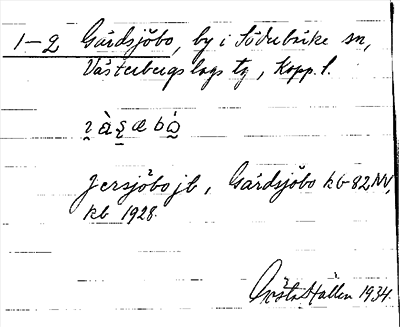 1–2 Gårdsjöbo, by i Söderbärke sn,
Västerbergslags tg, Kopp. l.
Jersjöbo jb, Gårdsjöbo kb 82 NV,
kb 1928.
Gösta Hallen 1934.